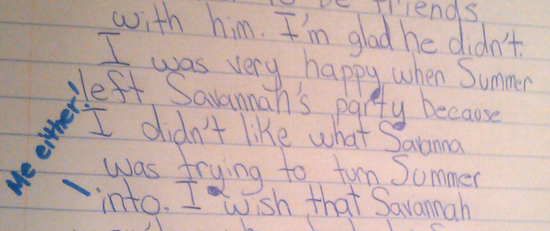 to be friends
with him. I'm glad he didn't.
I was very happy when Summer
left Savannah's party because
I didn't like what Savanna
was trying to turn Summer
into. I wish that Savannah
Me either!